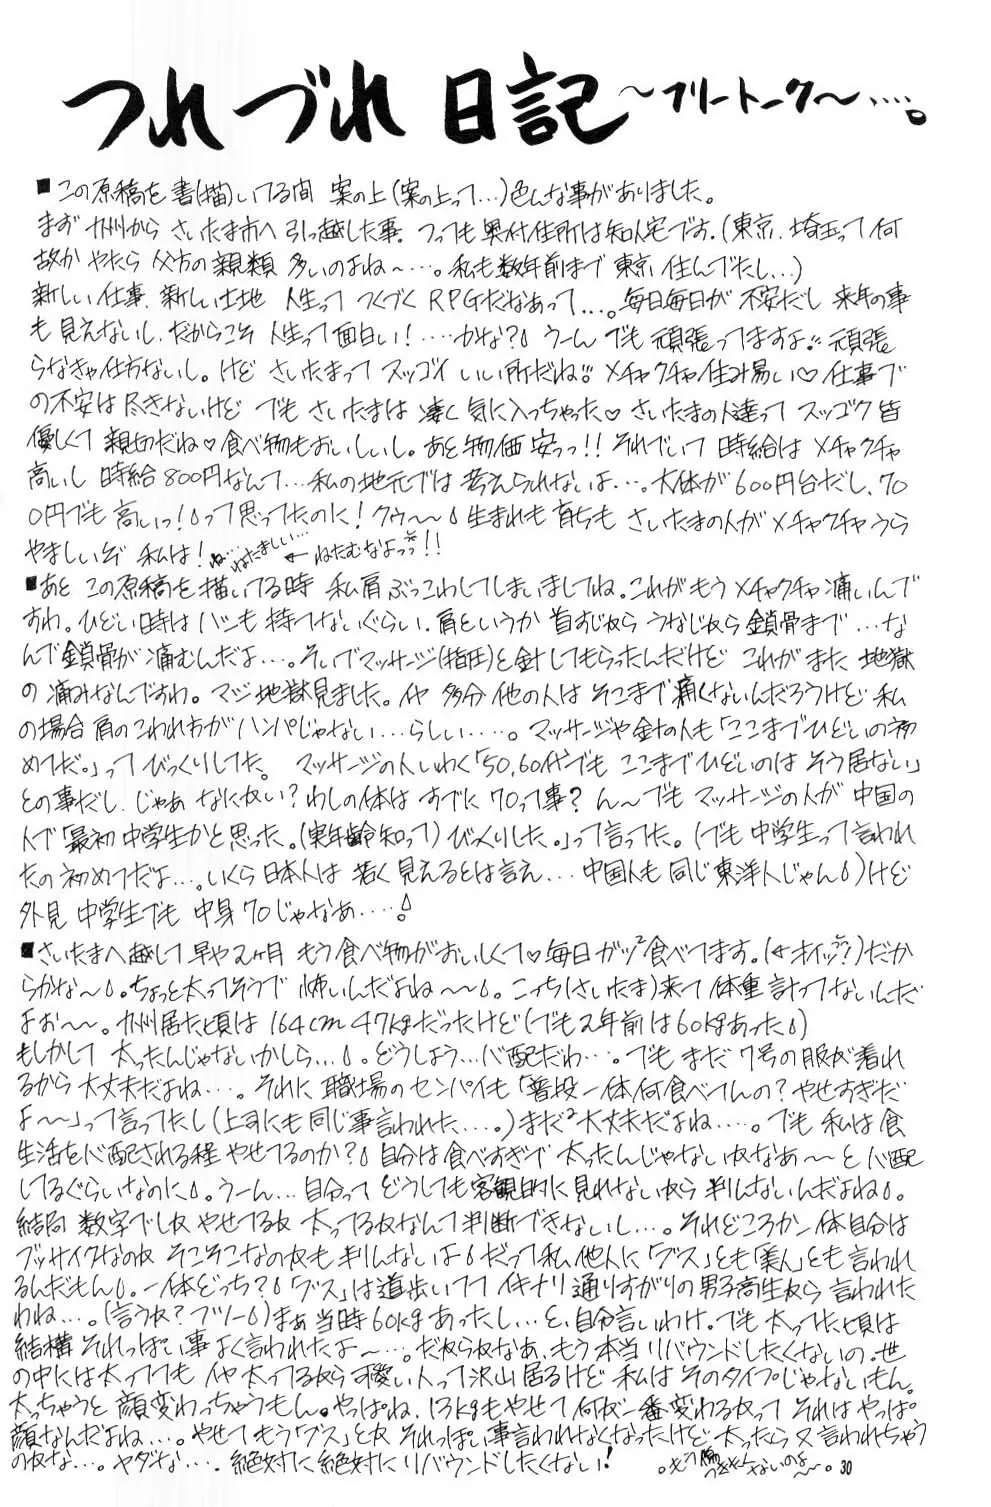 つれづれ日記 〜フリートーク〜‥‥。
■この原稿を書(描)いてる間 案の上(案の上って…)色んな事がありました。
まず 九州から さいたま市へ 引っ越した事。つっても奥付住所は知人宅です。(東京、埼玉って何
故か やたら 父方の親類 多いのよね〜…。私も数年前まで 東京 住んでたし…)
新しい仕事、新しい土地 人生って つくづく RPGだなあって…。毎日毎日が 不安だし 来年の事
も 見えないし、だからこそ 人生って面白い!‥‥かな? うーん でも 頑張ってますよ!! 頑張
らなきゃ仕方ないし。けど さいたまって スッゴイ いい所だね!! メチャクチャ住み易い♡ 仕事で
の不安は 尽きないけど でも さいたまは 凄く 気に入っちゃった♡ さいたまの人達って スッゴク 皆
優しくて 親切だね♡ 食べ物もおいしいし。あと 物価 安っっ!! それでいて 時給は メチャクチャ
高いし 時給800円なんて…私の地元では 考えられないよ…。大体が 600円台だし、70
0円でも 高いっ!って思ってたのに! クゥ〜〜 生まれも 育ちも さいたまの人が メチャクチャうら
やましいぞ 私は! ←ねたむなよっっ!!
■あと この原稿を 描いてる時 私 肩 ぶっこわしてしまいましてね。これがもう メチャクチャ 痛いんで
すわ。ひどい時は ハシも 持てないぐらい、肩というか 首すじやら うなじやら 鎖骨まで …な
んで 鎖骨が 痛むんだよ…。そいでマッサージ(指圧)と針してもらったんだけど これがまた 地獄
の 痛みなんですわ。マジ 地獄見ました。イヤ 多分 他の人は そこまで 痛くないんだろうけど 私
の場合 肩のこわれ方が ハンパじゃない…らしい…。マッサージや針の人も「ここまでひどいの初
めてだ。」って びっくりしてた。 マッサージの人いわく「50、60代でも ここまでひどいのは そう居ない」
との事だし、じゃあ なにかい? わしの体は すでに 70って事? ん〜でも マッサージの人が 中国の
人で「最初 中学生かと思った。(実年齢知って) びっくりした。」って言ってた。(でも 中学生って言われ
たの初めてだよ…。いくら日本人は 若く見えるとは言え… 中国人も 同じ東洋人じゃん)けど
外見 中学生でも 中身70じゃなあ‥‥
■さいたまへ越して 早や2ヶ月 もう食べ物がおいしくて♡毎日ガッ²食べてます。(←オイッ??)だか
らかな〜。ちょっと太ってそうで 怖いんだよね〜〜。こっち(さいたま)来て 体重 計ってないんだ
よぉ〜〜。九州居た頃は 164cm 47kgだったけど(でも2年前は60kgあった)
もしかして 太ったんじゃないかしら…。どうしよう…心配だわ…。でも まだ 7号の服が 着れ
るから 大丈夫だよね…。それに 職場のセンパイも「普段 一体何食べてんの? やせすぎだ
よ〜〜」って言ってたし(上司にも同じ事言われた…。)まだ²大丈夫だよね…。でも 私は 食
生活を心配される程 やせてるのか? 自分は食べすぎで 太ったんじゃないかなあ〜〜と 心配
してるぐらいなのに。うーん…自分って どうしても 客観的に 見れないから 判んないんだよね。
結局 数字でしか やせてるか 太ってるかなんて判断できないし…。それどころか 一体自分は
ブッサイクなのか そこそこなのかも 判んないよ だって私 他人に「ブス」とも「美人」とも 言われ
るんだもん。一体どっち?「ブス」は道歩いてて イキナリ 通りすがりの男子高生から 言われた
わね…。(言うか? フツー)まぁ 当時60kgあったし…と、自分言いわけ。でも 太ってた頃は
結構 それっぽい事 よく言われたよ〜…。だからかなあ、もう本当 リバウンドしたくないの。世
の中には太ってても イヤ 太ってるから 可愛い人って沢山 居るけど 私は そのタイプじゃないもん。
太っちゃうと 顔変わっちゃうもん。やっぱね、13kgもやせて 何が一番変わるかって それは やっぱ
顔なんだよね…。やせてもう「ブス」とか それっぽい事言われなくなったけど 太ったら 又 言われちゃう
のかな…。ヤダな…。絶対に 絶対に リバウンドしたくない!
30